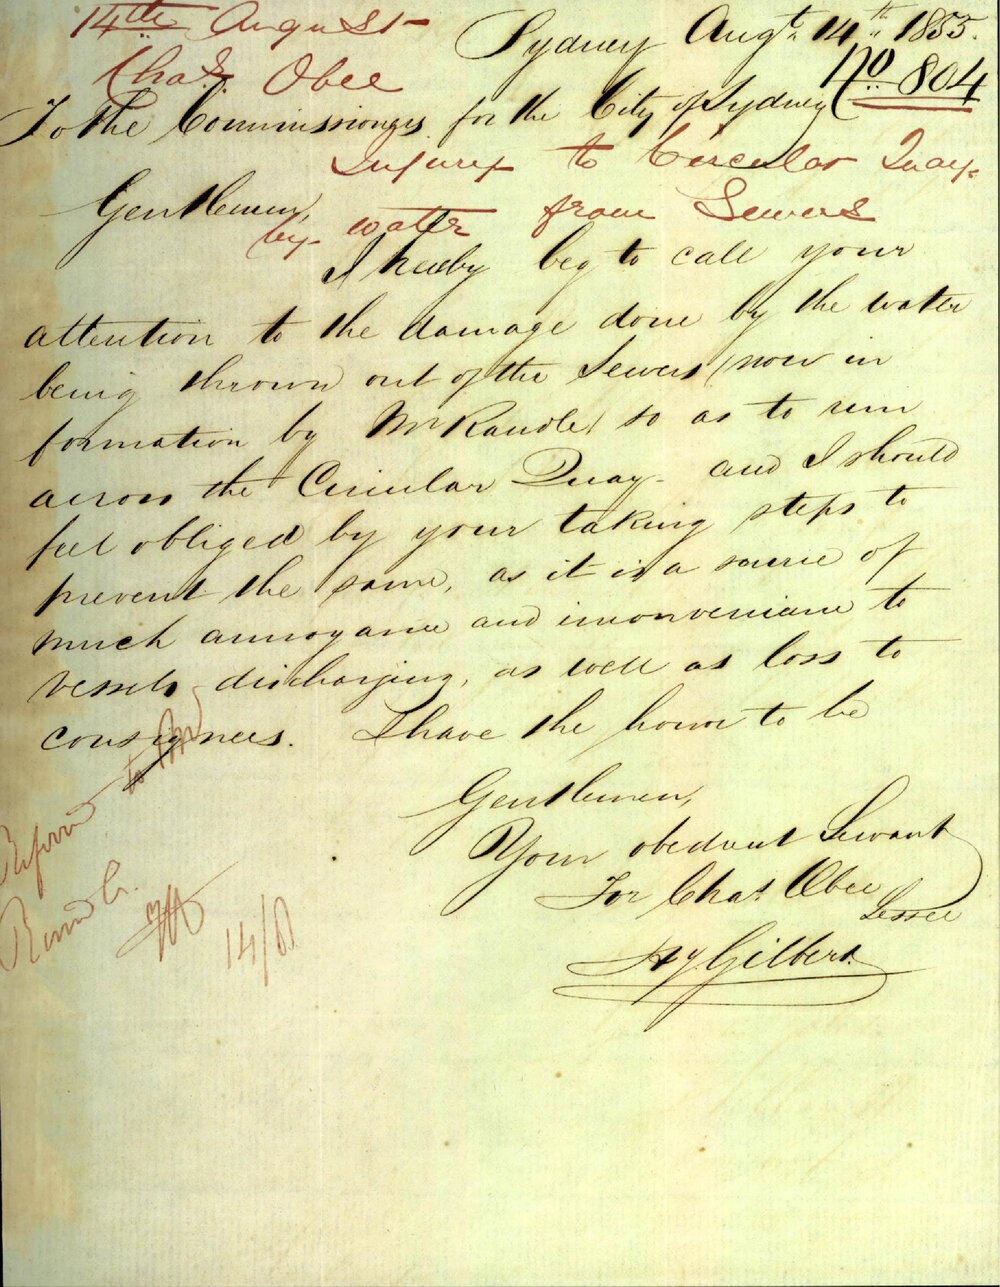 14th August
Sydney Augt 14th 1855.
Chas. Obee
No 804
To the Commissioners for the City of Sydney
Injury to Circular Quay.
Gentlemen,
by water from Sewers
I hereby beg to call your
attention to the damage done by the water
being thrown out of the Sewers (now in
formation by Mr Randle) so as to run
across the Circular Quay - and I should
feel obliged by your taking steps to
prevent the same, as it is a source of
much annoyance and inconvenience to
vessels discharging, as well as loss to
consignees. I have the honor to be
Gentlemen,
Your obedient Servant
For Chas Obee
Lessee
Hy. Gilbert.
to
14/8